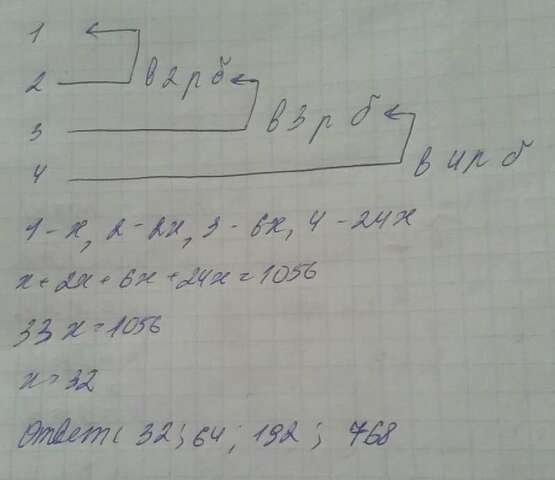 1
2 в 2 р б
3 в 3 р б
4 в 4 р б
1 - x, 2 - 2x, 3 - 6x, 4 - 24x
x + 2x + 6x + 24x = 1056
33x = 1056
x = 32
Ответ: 32; 64; 192; 768